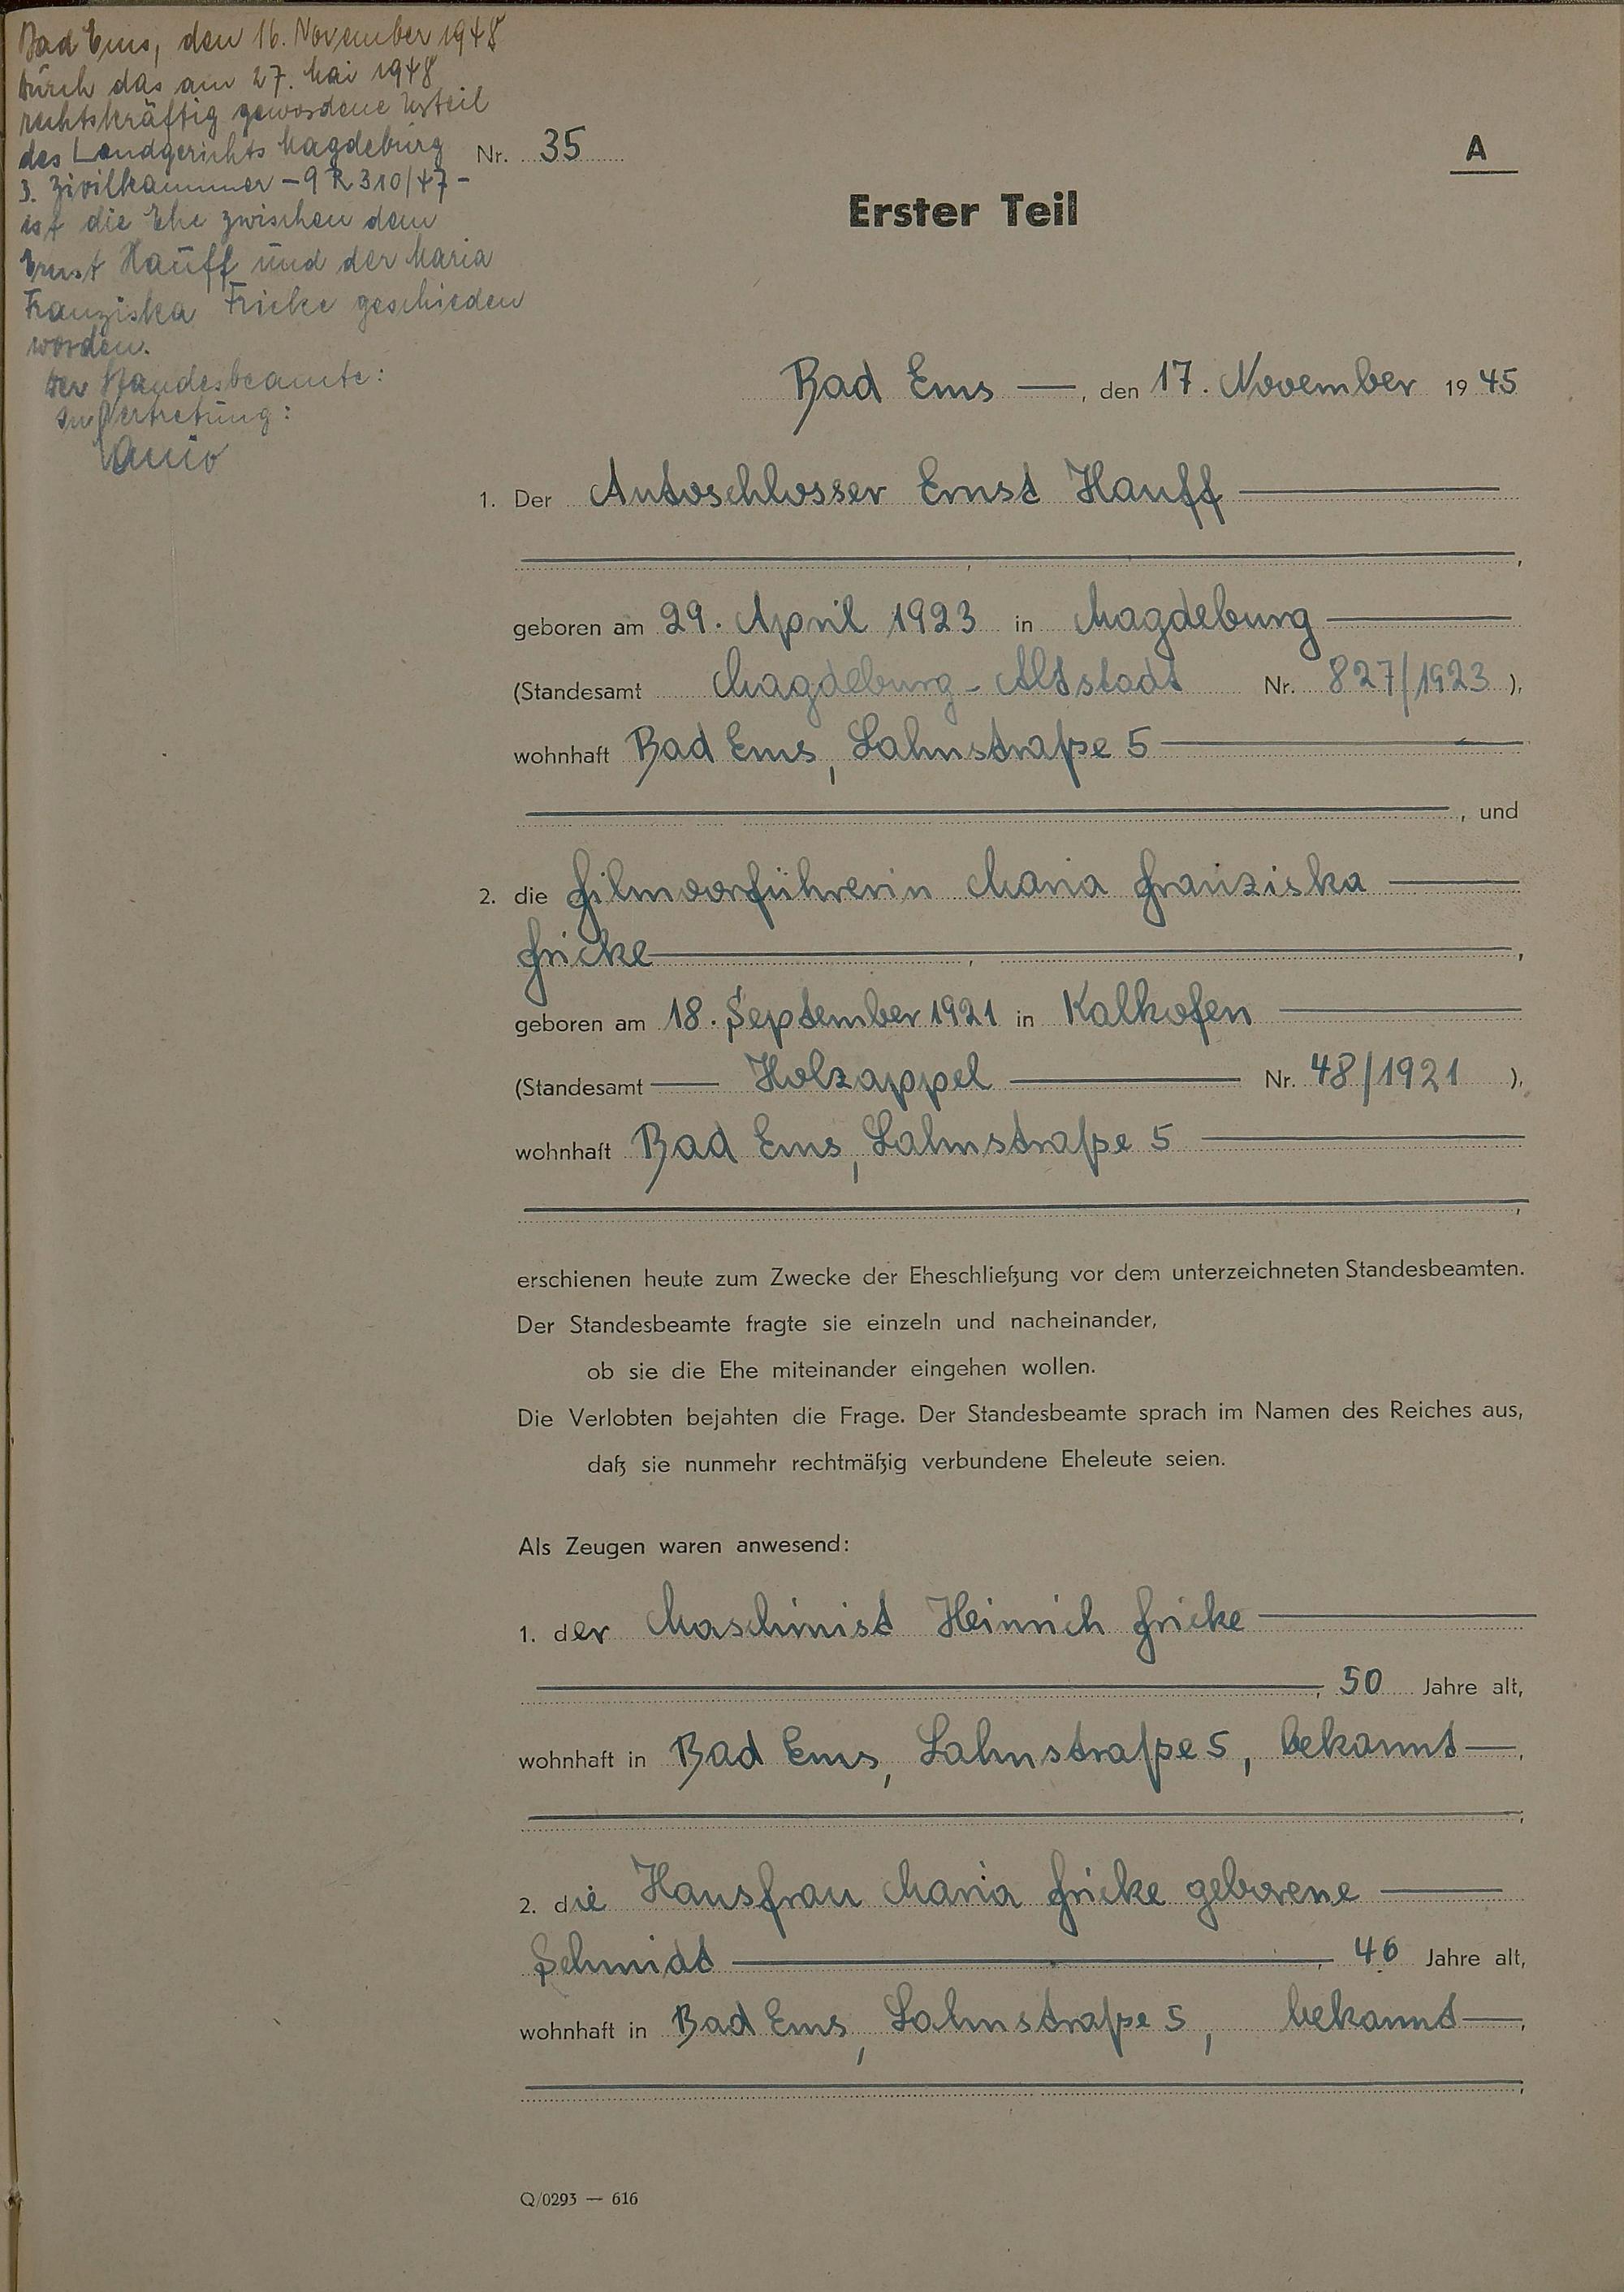 Bad Ems, den 16. November 1948
Durch das am 27. Mai 1948
rechtskräftig gewordene Urteil
des Landgerichts Magdeburg
3. Zivilkammer – 9 R 310/47 –
ist die Ehe zwischen dem
Ernst Hauff und der Maria
Franziska Fricke geschieden
worden.
Der Standesbeamte:
In Vertretung:
Nr. 35
A
Erster Teil
Bad Ems —, den 17. November 1945
1. Der Autoschlosser Ernst Hauff —
,
geboren am 29. April 1923 in Magdeburg —
(Standesamt Magdeburg-Altstadt Nr. 827/1923 ),
wohnhaft Bad Ems, Lahnstraße 5 —
, und
2. die Filmvorführerin Maria Franziska —
Fricke —,
geboren am 18. September 1921 in Kalkofen —
(Standesamt — Holzappel — Nr. 48/1921 ),
wohnhaft Bad Ems, Lahnstraße 5 —
,
erschienen heute zum Zwecke der Eheschließung vor dem unterzeichneten Standesbeamten.
Der Standesbeamte fragte sie einzeln und nacheinander,
ob sie die Ehe miteinander eingehen wollen.
Die Verlobten bejahten die Frage. Der Standesbeamte sprach im Namen des Reiches aus,
daß sie nunmehr rechtmäßig verbundene Eheleute seien.
Als Zeugen waren anwesend:
1. der Maschinist Heinrich Fricke —
—, 50 Jahre alt,
wohnhaft in Bad Ems, Lahnstraße 5, bekannt —,
;
2. die Hausfrau Maria Fricke geborene —
Schmidt —, 46 Jahre alt,
wohnhaft in Bad Ems, Lahnstraße 5, bekannt —,
;
Q/0293 — 616